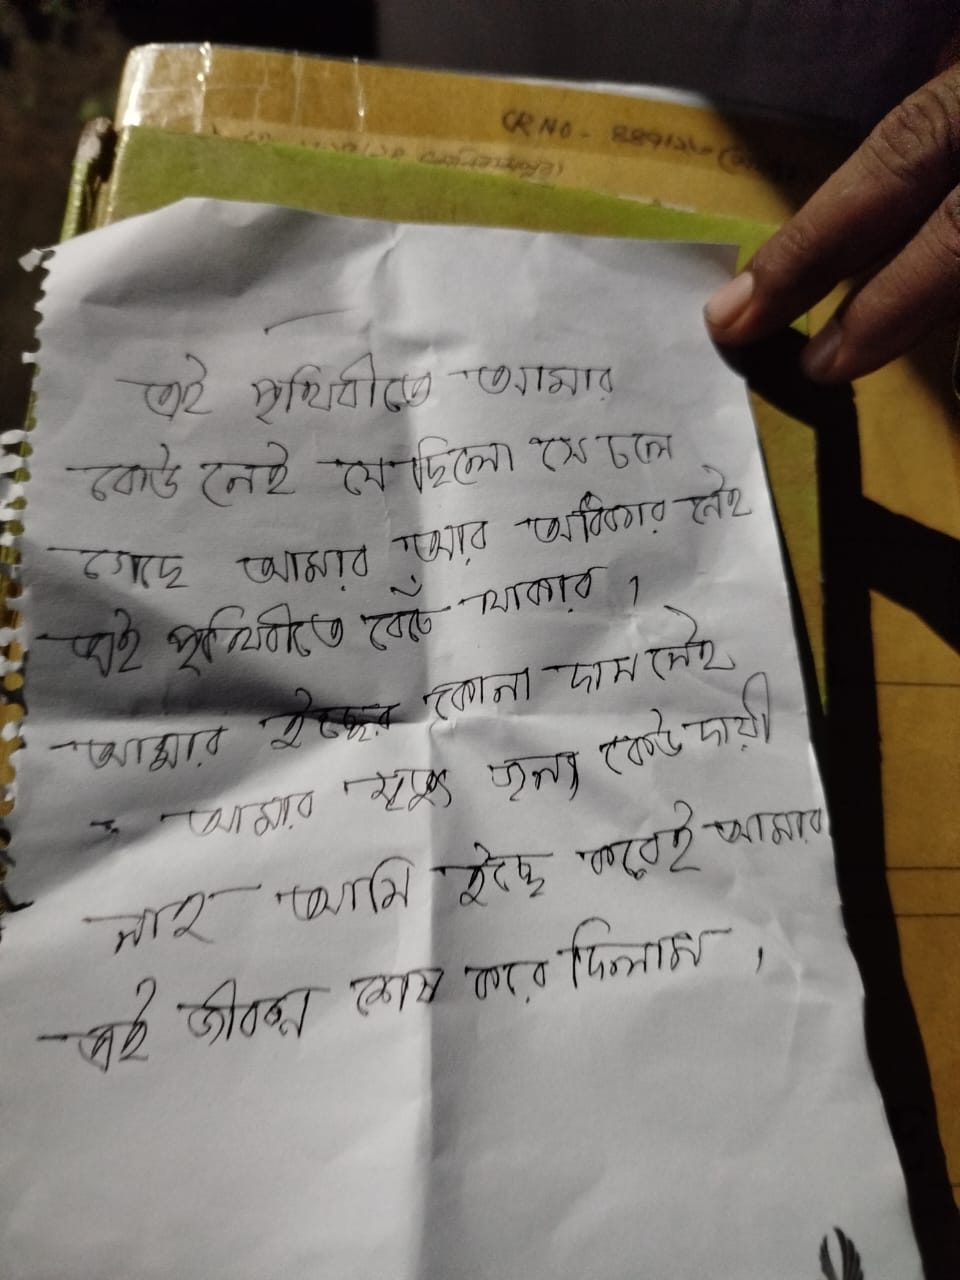 CR NO -
এই পৃথিবীতে আমার
কেউ নেই যে ছিলো সে চলে
গেছে আমার আর অধিকার নেই
এই পৃথিবীতে বেচেঁ থাকার ।
আমার ইচ্ছের কোনো দাম নেই
আমার মৃত্যুর জন্য কেউ দায়ী
নাই আমি ইচ্ছে করেই আমার
এই জীবন শেষ করে দিলাম ।